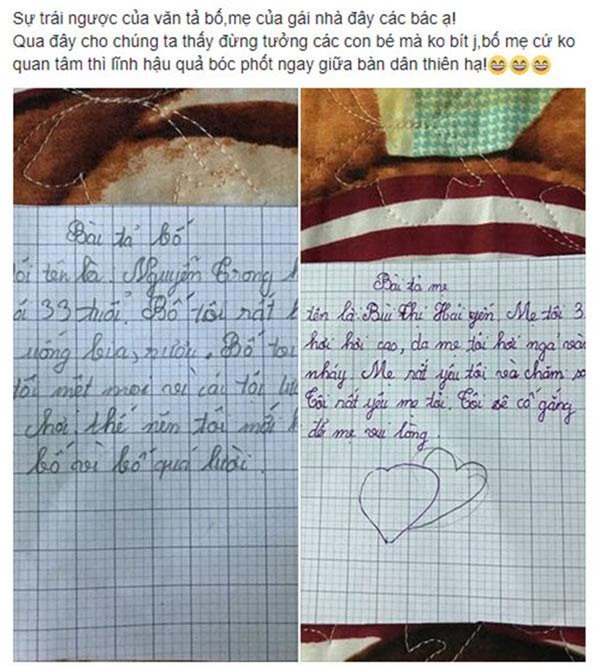 Sự trái ngược của văn tả bố,mẹ của gái nhà đây các bác ạ!
Qua đây cho chúng ta thấy đừng tưởng các con bé mà ko bít j,bố mẹ cứ ko
quan tâm thì lĩnh hậu quả bóc phốt ngay giữa bàn dân thiên hạ!😄😄😄
Bài tả bố
ôi tên là. Nguyễn Trong
ôi 33 tuổi. Bố tôi rất
uống bia, rượu. Bố tôi
tối mệt mỏi vì cái tội lười
chơi. thế nên tôi mới
bố vì bố quá lười.
Bài tả mẹ
tên là Bùi Thị Hải yến. Mẹ tôi 3
hơi hơi cao, da mẹ tôi hơi ngả
nháy. Mẹ rất yêu tôi và chăm
Tôi rất yêu mẹ tôi. Tôi sẽ cố gắng
để mẹ vui lòng.